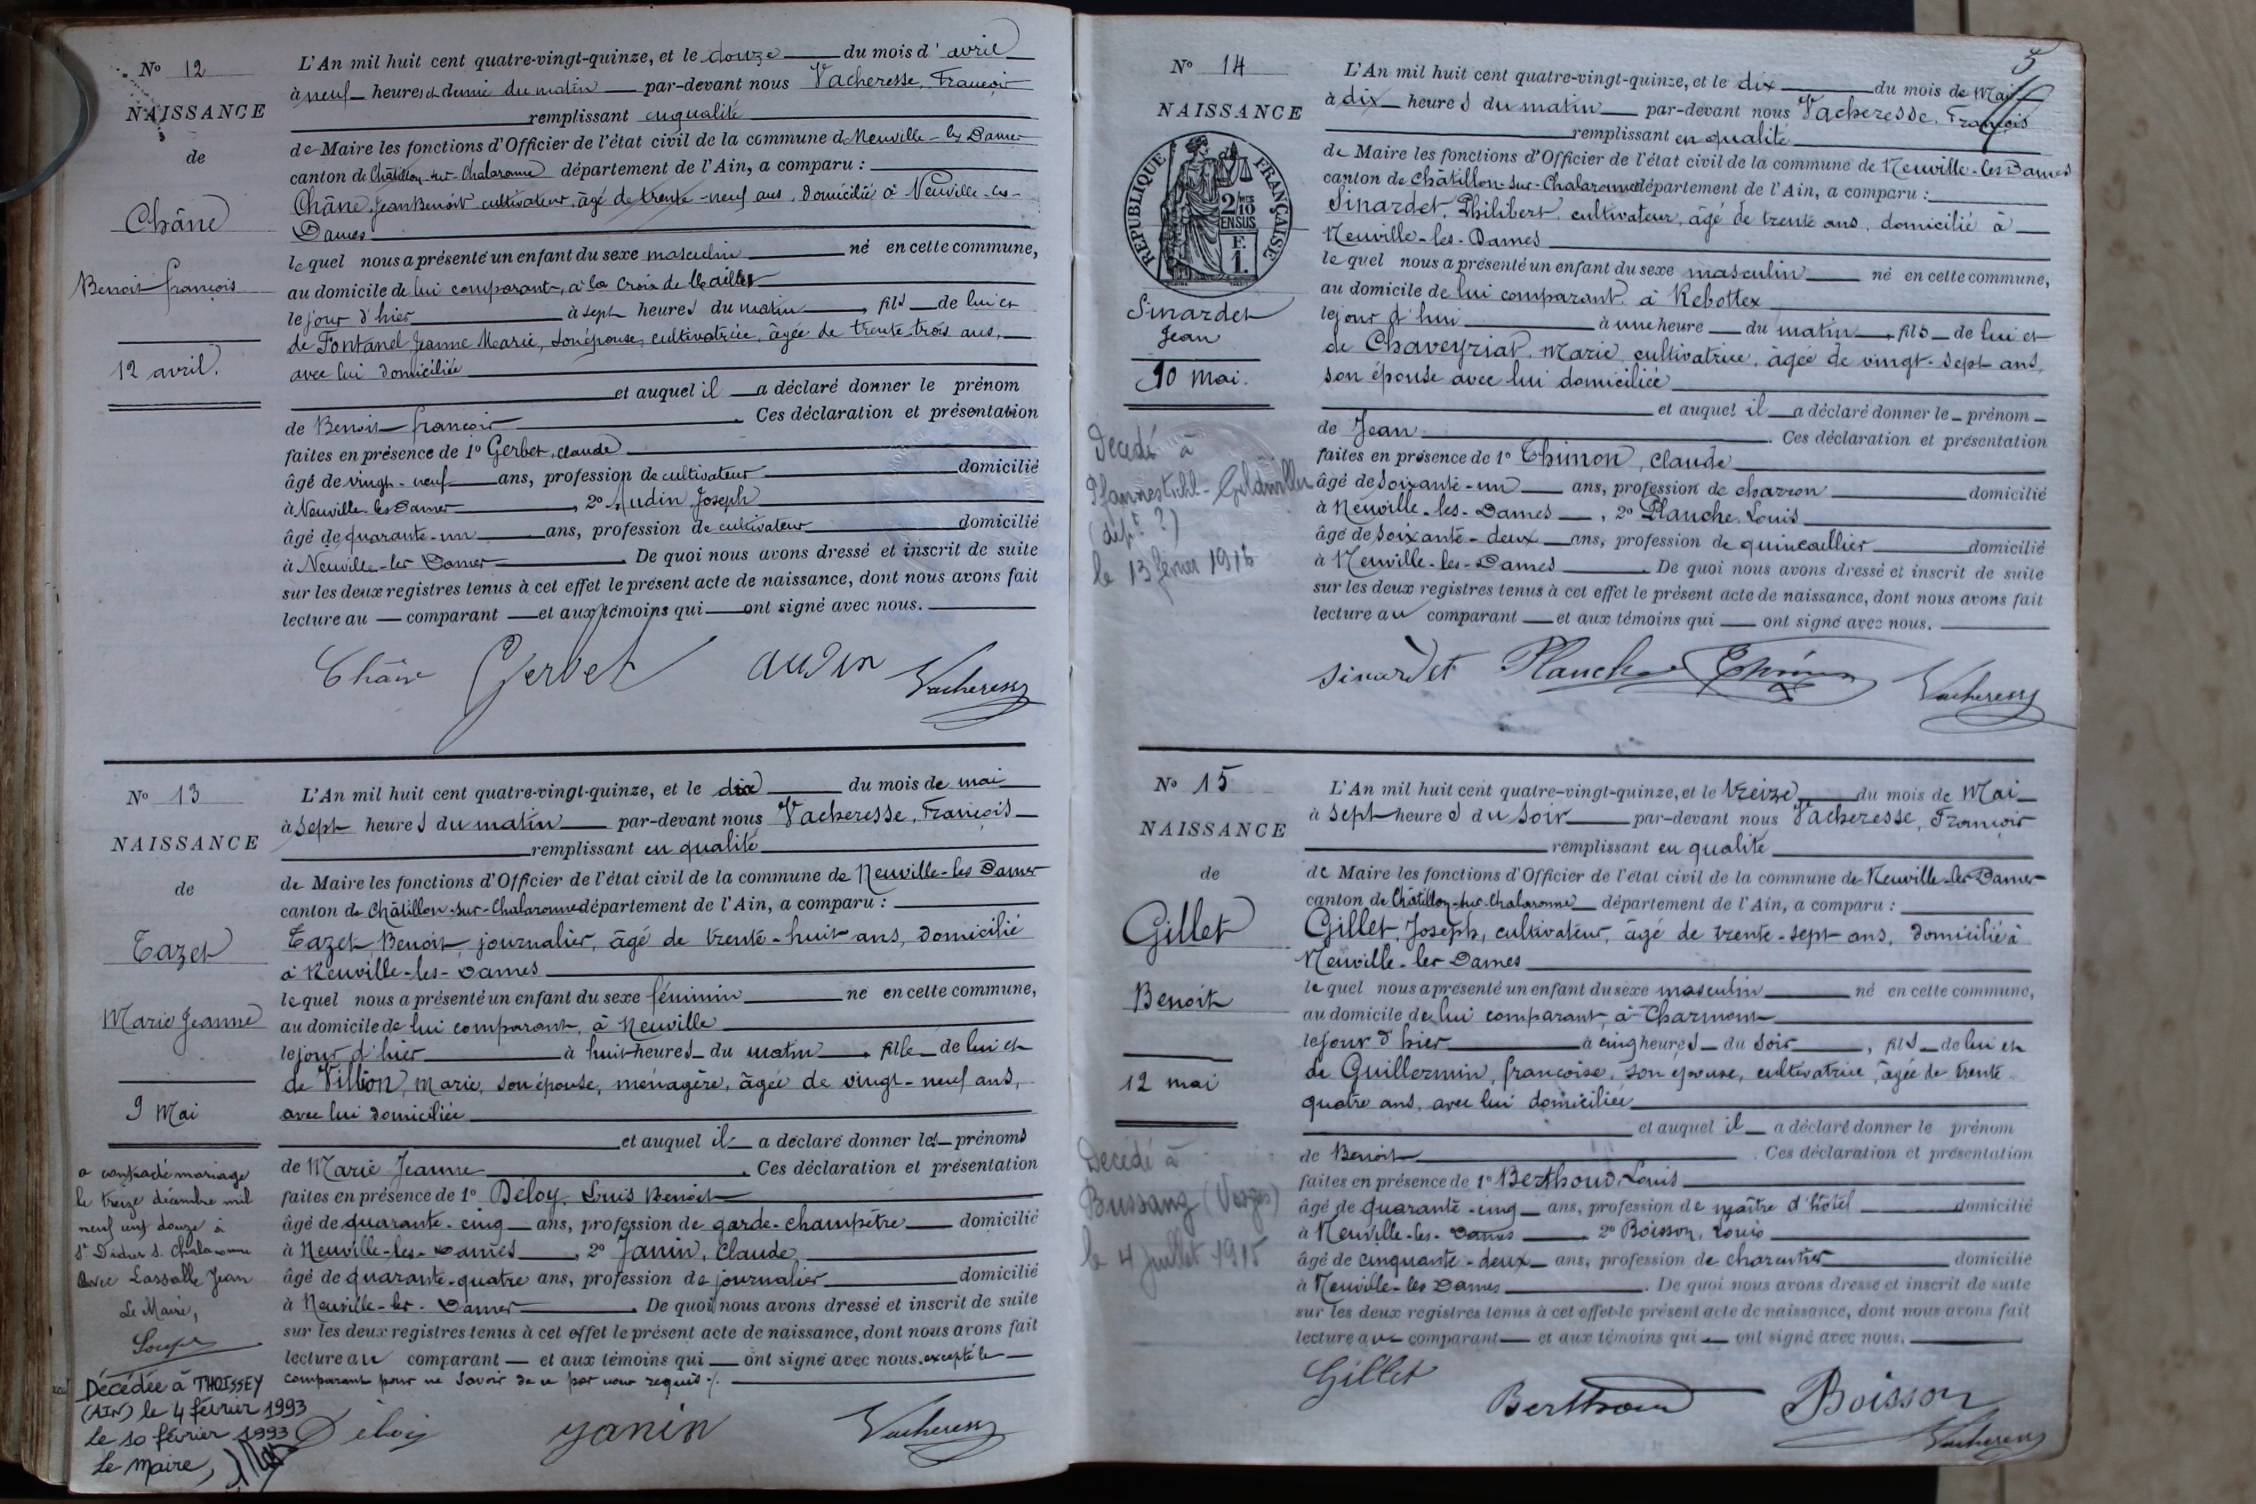 N° 12
NAISSANCE
de
Châne
Benoit françois
12 avril.
L'An mil huit cent quatre-vingt-quinze, et le douze du mois d'avril
à neuf heures et demie du matin par-devant nous Vacheresse, François
remplissant en qualité
de Maire les fonctions d'Officier de l'état civil de la commune de Neuville-les Dames
canton de Châtillon-sur-Chalaronne département de l'Ain, a comparu :
Châne, Jean Benoit cultivateur, âgé de trente-neuf ans, domicilié à Neuville-les-
Dames
lequel nous a présenté un enfant du sexe masculin né en cette commune,
au domicile de lui comparant, à la Croix de
le jour d'hier à sept heures du matin, fils de lui et
de Fontanel Jeanne Marie, son épouse, cultivatrice, âgée de trente-trois ans,
avec lui domiciliée
et auquel il a déclaré donner le prénom
de Benoit françois. Ces déclaration et présentation
faites en présence de 1° Gerbet, claude
âgé de vingt-neuf ans, profession de cultivateur domicilié
à Neuville-les Dames, 2° Audin, Joseph
âgé de quarante-un ans, profession de cultivateur domicilié
à Neuville-les Dames. De quoi nous avons dressé et inscrit de suite
sur les deux registres tenus à cet effet le présent acte de naissance, dont nous avons fait
lecture au comparant et aux témoins qui ont signé avec nous.
Châne Gerbet audin Vacheresse
N° 13
NAISSANCE
de
Tazet
Marie Jeanne
9 Mai
a contracté mariage
le treize décembre mil
neuf cent douze à
St Didier s. Chalaronne
avec Lassalle Jean
Le Maire,
Décédée à THOISSEY
(AIN) le 4 février 1993
le 10 février 1993
Le Maire,
L'An mil huit cent quatre-vingt-quinze, et le dix du mois de mai
à sept heures du matin par-devant nous Vacheresse, François
remplissant en qualité
de Maire les fonctions d'Officier de l'état civil de la commune de Neuville-les Dames
canton de Châtillon-sur-Chalaronne département de l'Ain, a comparu :
Tazet Benoit, journalier, âgé de trente-huit ans, domicilié
à Neuville-les-Dames
lequel nous a présenté un enfant du sexe féminin né en cette commune,
au domicile de lui comparant, à Neuville
le jour d'hier à huit heures du matin, fille de lui et
de Villion, Marie, son épouse, ménagère, âgée de vingt-neuf ans,
avec lui domiciliée
et auquel il a déclaré donner les prénoms
de Marie Jeanne. Ces déclaration et présentation
faites en présence de 1° Déloy, Louis Benoit
âgé de quarante-cinq ans, profession de garde-champêtre domicilié
à Neuville-les-Dames, 2° Janin, Claude
âgé de quarante-quatre ans, profession de journalier domicilié
à Neuville-les-Dames. De quoi nous avons dressé et inscrit de suite
sur les deux registres tenus à cet effet le présent acte de naissance, dont nous avons fait
lecture au comparant et aux témoins qui ont signé avec nous. excepté le
comparant pour ne savoir de ce par nous requis ./.
Déloy Janin Vacheresse
5
N° 14
NAISSANCE
RÉPUBLIQUE FRANÇAISE
2/10
EN SUS
F.
1.
Sinardet
Jean
10 mai.
Décédé à
Pfannestiehl-Guldwiller
(dépt ?)
le 13 février 1916
L'An mil huit cent quatre-vingt-quinze, et le dix du mois de Mai
à dix heures du matin par-devant nous Vacheresse, François
remplissant en qualité
de Maire les fonctions d'Officier de l'état civil de la commune de Neuville-les Dames
canton de Châtillon-sur-Chalaronne département de l'Ain, a comparu :
Sinardet, Philibert, cultivateur, âgé de trente ans, domicilié à
Neuville-les-Dames
lequel nous a présenté un enfant du sexe masculin né en cette commune,
au domicile de lui comparant à Rebottex
le jour d'hui à une heure du matin, fils de lui et
de Chaveyriat, Marie, cultivatrice, âgée de vingt-sept ans,
son épouse avec lui domiciliée
et auquel il a déclaré donner le prénom
de Jean. Ces déclaration et présentation
faites en présence de 1° Thimon, Claude
âgé de soixante-un ans, profession de charron domicilié
à Neuville-les-Dames, 2° Planche Louis
âgé de soixante-deux ans, profession de quincaillier domicilié
à Neuville-les-Dames. De quoi nous avons dressé et inscrit de suite
sur les deux registres tenus à cet effet le présent acte de naissance, dont nous avons fait
lecture au comparant et aux témoins qui ont signé avec nous.
Sinardet Planche Thimon Vacheresse
N° 15
NAISSANCE
de
Gillet
Benoit
12 mai
Décédé à
Bussang (Vosges)
le 4 juillet 1915
L'An mil huit cent quatre-vingt-quinze, et le treize du mois de Mai
à sept heures du soir par-devant nous Vacheresse, François
remplissant en qualité
de Maire les fonctions d'Officier de l'état civil de la commune de Neuville-les-Dames
canton de Châtillon-sur-Chalaronne département de l'Ain, a comparu :
Gillet, Joseph, cultivateur, âgé de trente-sept ans, domicilié à
Neuville-les Dames
lequel nous a présenté un enfant du sexe masculin né en cette commune,
au domicile de lui comparant, à Charmont
le jour d'hier à cinq heures du soir, fils de lui et
de Guillermin, françoise, son épouse, cultivatrice, âgée de trente
quatre ans, avec lui domiciliée
et auquel il a déclaré donner le prénom
de Benoit. Ces déclaration et présentation
faites en présence de 1° Berthoud, Louis
âgé de quarante-cinq ans, profession de maître d'hôtel domicilié
à Neuville-les-Dames 2° Boisson, Louis
âgé de cinquante-deux ans, profession de charentier domicilié
à Neuville-les Dames. De quoi nous avons dressé et inscrit de suite
sur les deux registres tenus à cet effet le présent acte de naissance, dont nous avons fait
lecture au comparant et aux témoins qui ont signé avec nous.
Gillet Berthoud Boisson
Vacheresse